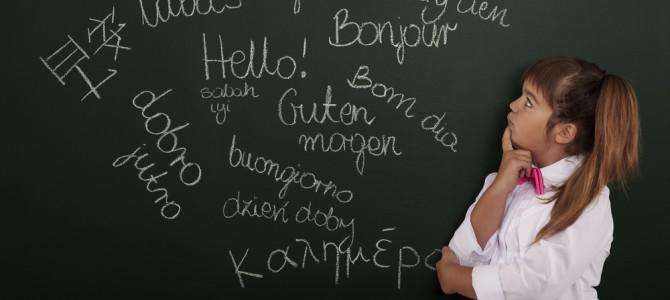 Labas
Bonjour
Hello!
sabah
iyi
Guten
morgen
Bom dia
dobro
jutro
buongiorno
dzień doby
Καλημέρα